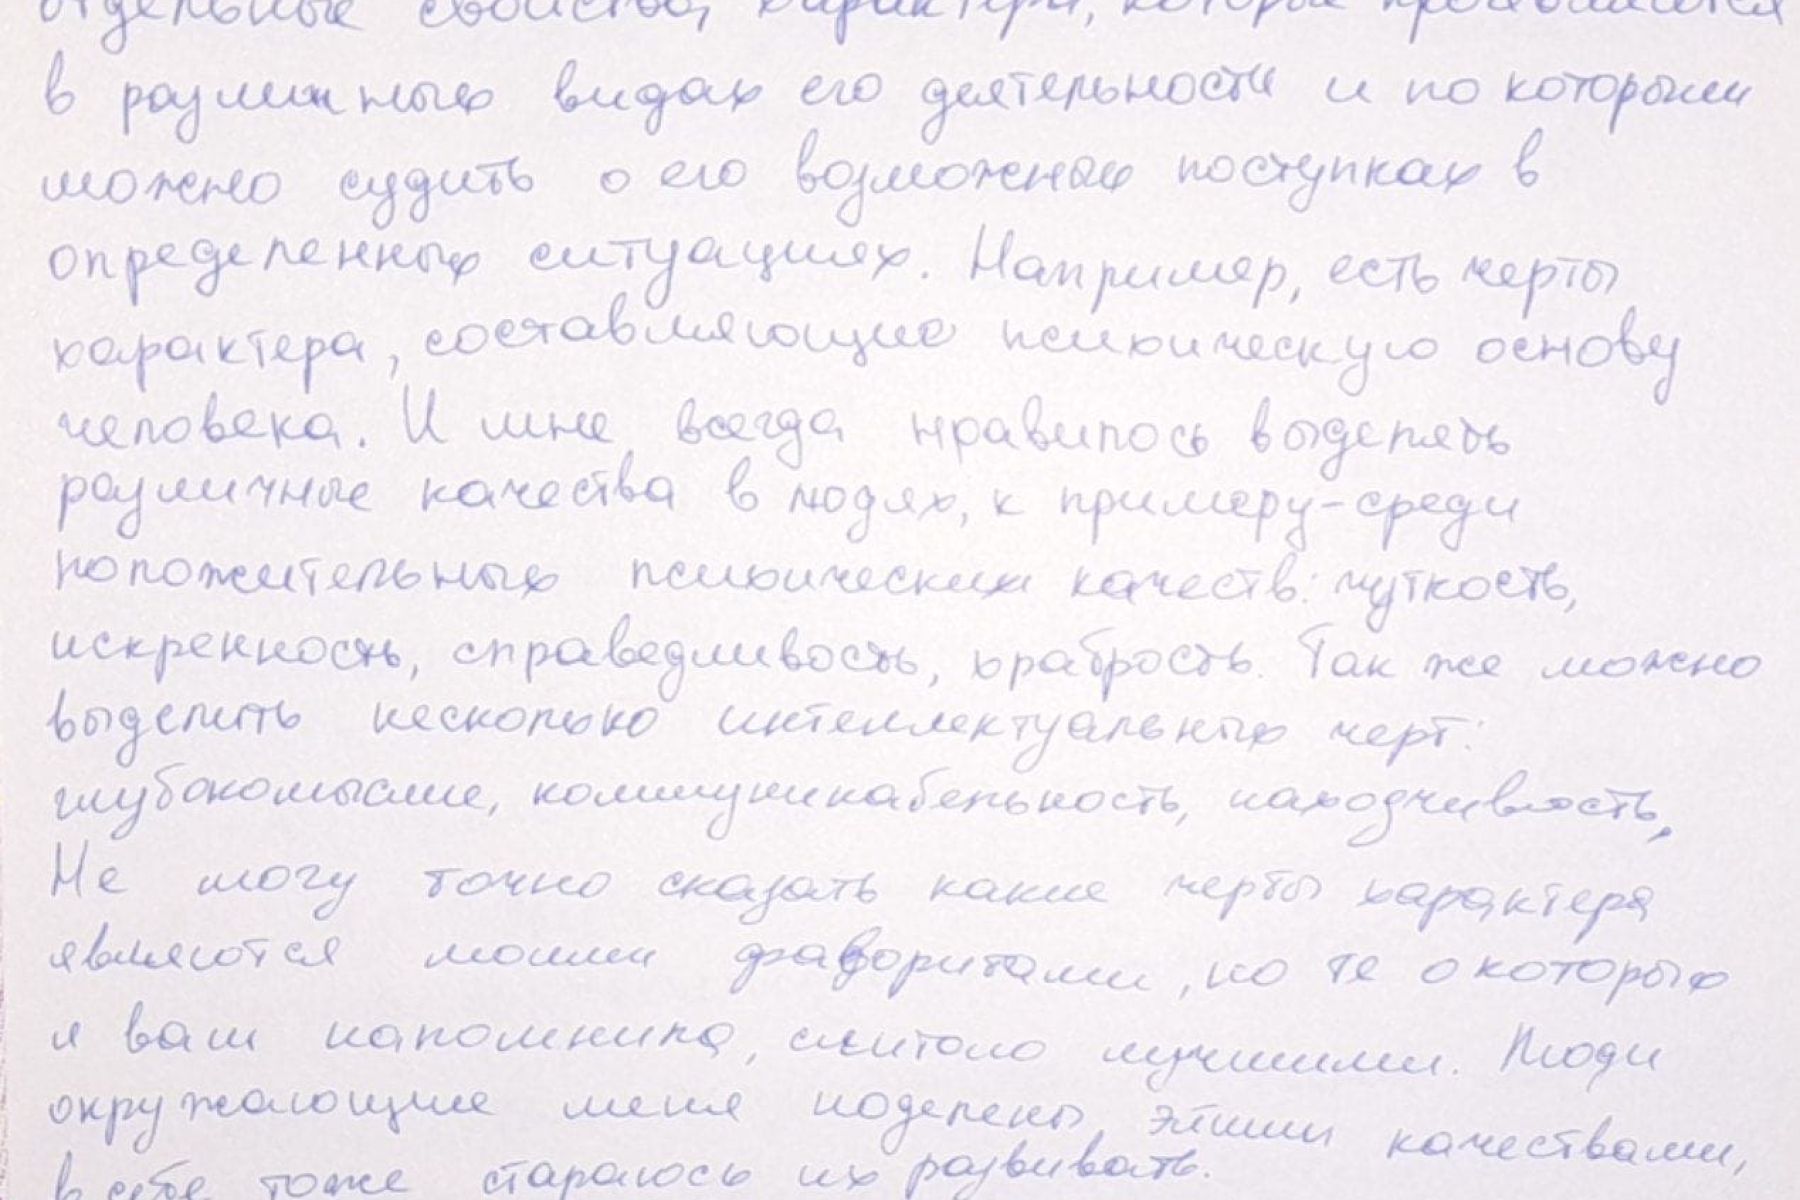 отдельные свойства характера, которые проявляются
в различных видах его деятельности и по которым
можно судить о его возможных поступках в
определенных ситуациях. Например, есть черты
характера, составляющие психическую основу
человека. И мне всегда нравилось выделять
различные качества в людях, к примеру-среди
положительных психических качеств: чуткость,
искренность, справедливость, храбрость. Так же можно
выделить несколько интеллектуальных черт:
глубокомыслие, коммуникабельность, находчивость,
Не могу точно сказать какие черты характера
являются моими фаворитами, но те о которых
я вам напомнила, считаю лучшими. Люди
окружающие меня наделены этими качествами,
в себе тоже стараюсь их развивать.